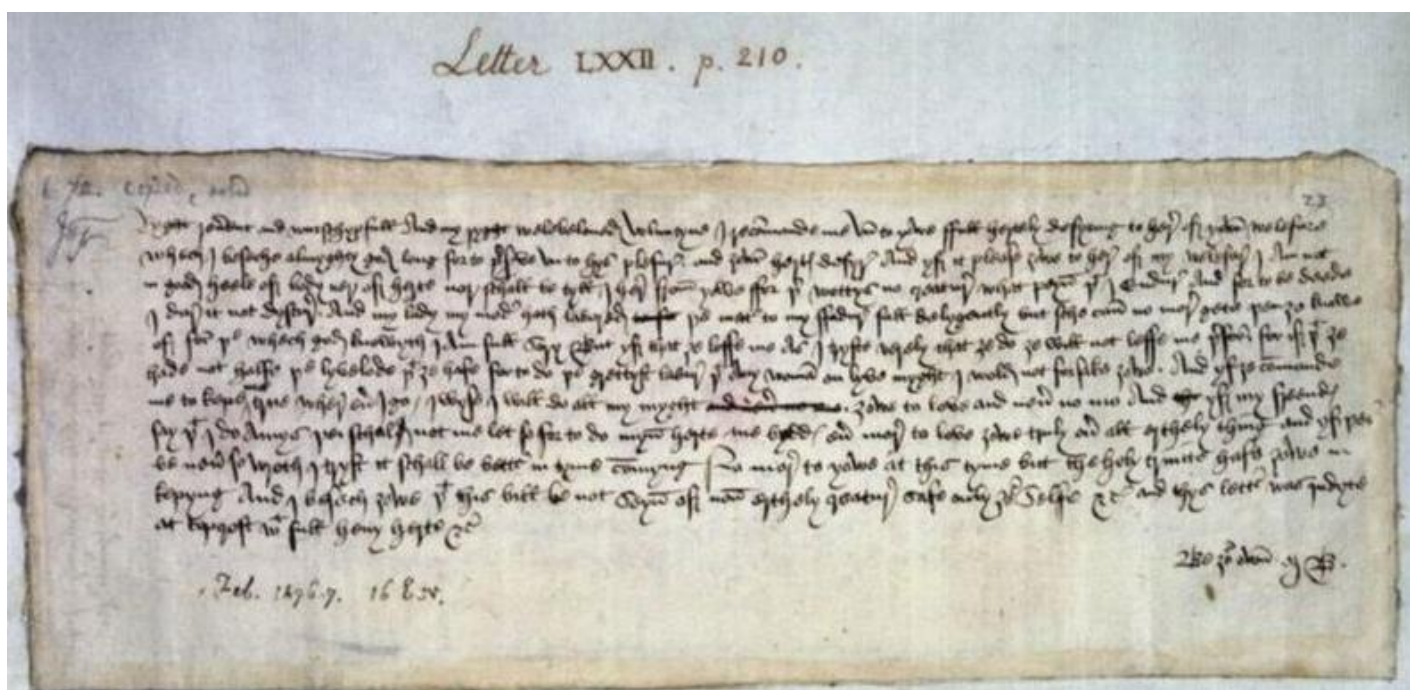 Letter LXXII. p. 210.
23
Ryght reverent and wurschypfull And my ryght welebeloved Voluntyne I recomande me un to yowe full hertely desyring to here of yowr welefare
whech I beseche almyghty god long for to preserve un to hys plesure and yowr hertys desyre And yf it please yowe to here of my welefare I am not
in good heele of body ner of herte nor schall be tyll I here from yowe ffor ther wottys no creature what peyn that I endure And for to be deede
I dure it not dyscure And my lady my moder hath labored the mater to my ffadure full delygently but sche can no more gete then ye knowe
of for the whech god knowyth I am full sory But yf that ye loffe me as I tryste verely that ye do ye will not leffe me therfor for if that ye
hade not halfe the lyvelode that ye hafe for to do the grettyst labure that any woman on lyve myght I wold not forsake yowe And yf ye comande
me to kepe me true wher ever I go I wyse I will do all my myght yowe to love and never no mo And yf my freendys
say that I do amys thei schal not me let so for to do myn herte me bydds ever more to love yowe truly over all erthely thing and yf thei
be never so wroth I tryst it schall be better in tyme comyng No more to yowe at this tyme but the holy trinite hafe yowe in
kepyng And I besech yowe that this bill be not seyn of non erthely creature safe only your selfe &c and thys letter was indyte
at Topcroft wt full hevy herte &c
Be your own M B.
Feb. 1476-7. 16 E. IV.